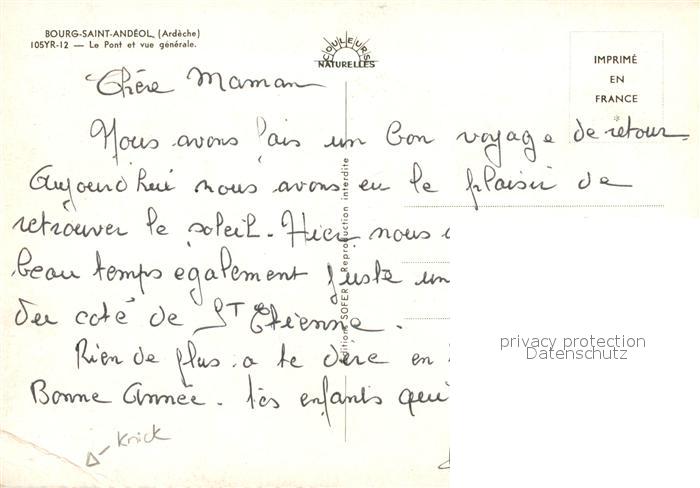 BOURG-SAINT-ANDÉOL (Ardèche)
105YR-12 — Le Pont et vue générale.
COULEURS
NATURELLES
IMPRIMÉ
EN
FRANCE
Chère Maman
Nous avons fais un bon voyage de retour.
Aujourd'hui nous avons eu le plaisir de
retrouver le soleil. Hier nous
beau temps également juste un
du coté de St Etienne.
Rien de plus a te dire en
Bonne Année. tes enfants qui
Editions SOFER Reproduction interdite
privacy protection
Datenschutz
Knick